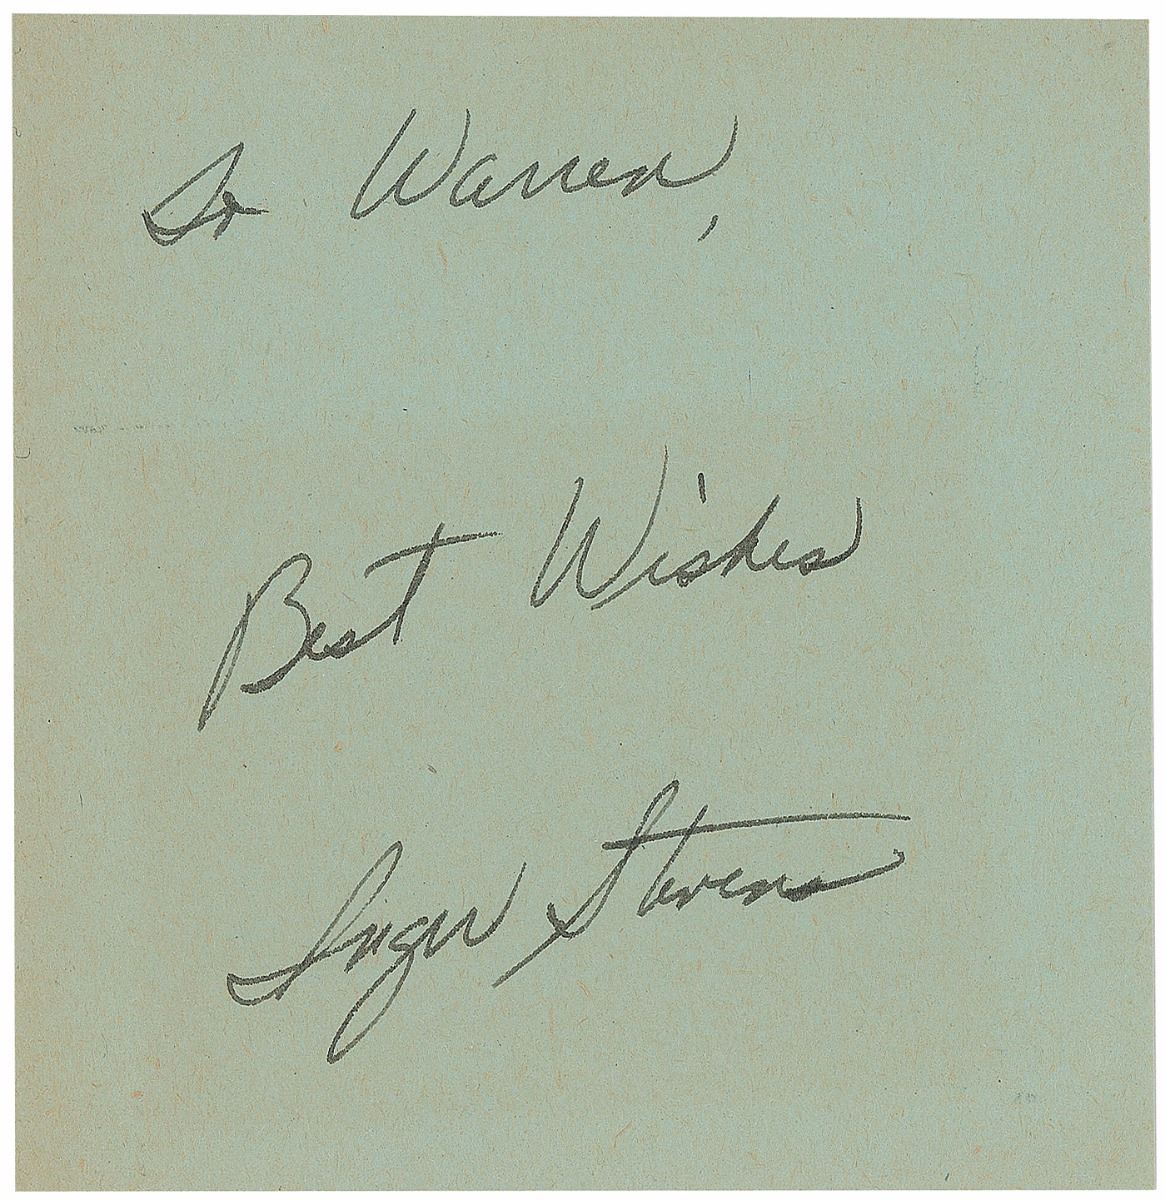 To Warren,
Best Wishes
Inger Stevens